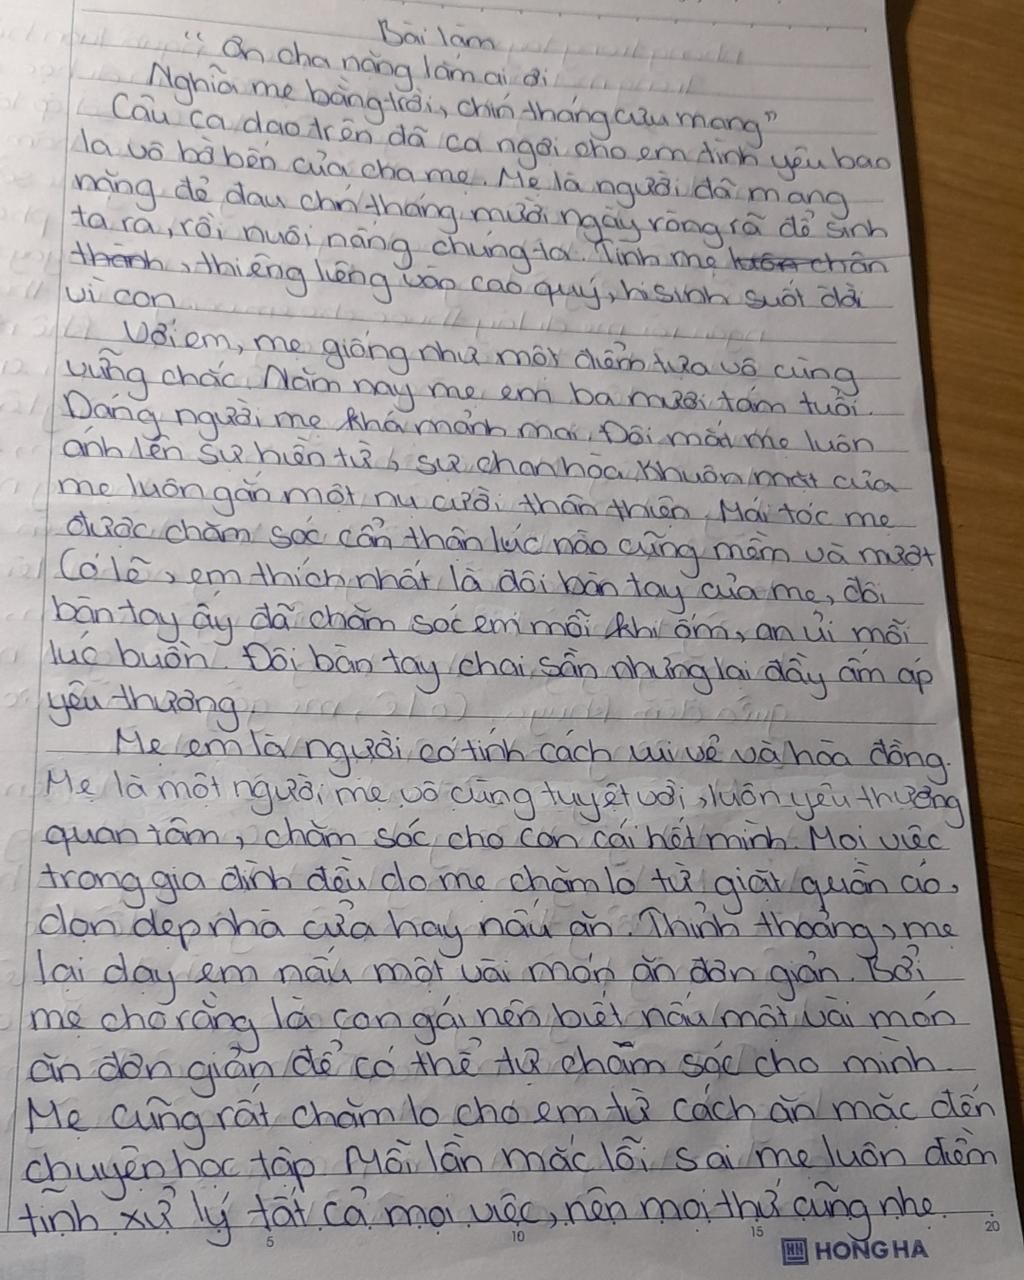 Bài làm
"Ơn cha nặng lắm ai ơi
Nghĩa mẹ bằng trời, chín tháng cưu mang"
Câu ca dao trên đã ca ngợi cho em tình yêu bao
la vô bờ bến của cha mẹ. Mẹ là người đã mang
nặng đẻ đau chín tháng mười ngày ròng rã để sinh
ta ra, rồi nuôi nấng chúng ta. Tình mẹ luôn chân
thành, thiêng liêng vào cao quý, hi sinh suốt đời
vì con
Với em, mẹ giống như một điểm tựa vô cùng
vững chắc. Năm nay mẹ em ba mươi tám tuổi.
Dáng người mẹ khá mảnh mai. Đôi mắt mẹ luôn
ánh lên sự hiền từ, sự chan hòa. Khuôn mặt của
mẹ luôn gắn một nụ cười thân thiện. Mái tóc mẹ
được chăm sóc cẩn thận lúc nào cũng mềm và mượt
Có lẽ, em thích nhất là đôi bàn tay của mẹ, đôi
bàn tay ấy đã chăm sóc em mỗi khi ốm, an ủi mỗi
lúc buồn. Đôi bàn tay chai sần nhưng lại đầy ấm áp
yêu thương
Mẹ em là người có tính cách vui vẻ và hòa đồng.
Mẹ là một người mẹ vô cùng tuyệt vời, luôn yêu thương
quan tâm, chăm sóc cho con cái hết mình. Mọi việc
trong gia đình đều do mẹ chăm lo từ giặt quần áo,
dọn dẹp nhà cửa hay nấu ăn. Thỉnh thoảng, mẹ
lại dạy em nấu một vài món ăn đơn giản. Bởi
mẹ cho rằng là con gái nên biết nấu một vài món
ăn đơn giản để có thể tự chăm sóc cho mình.
Mẹ cũng rất chăm lo cho em từ cách ăn mặc đến
chuyện học tập. Mỗi lần mắc lỗi sai mẹ luôn điềm
tĩnh xử lý tất cả mọi việc, nên mọi thứ cũng nhẹ
5 10 15 20
HH HONG HA